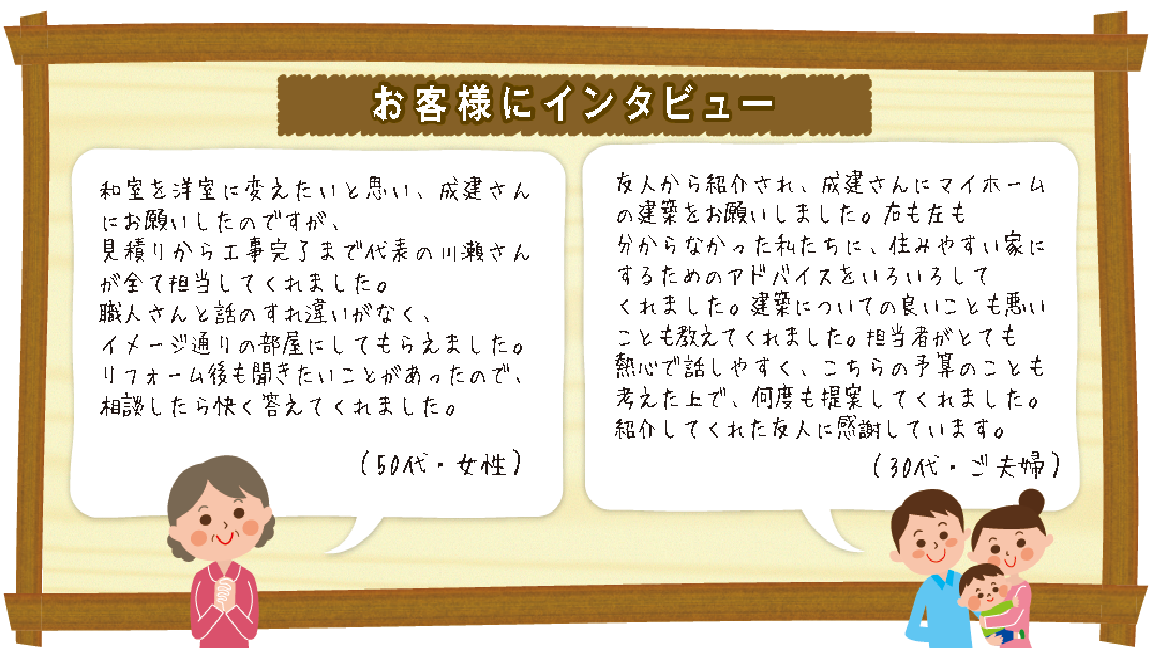 お客様にインタビュー
和室を洋室に変えたいと思い、成建さん
にお願いしたのですが、
見積りから工事完了まで代表の川瀬さん
が全て担当してくれました。
職人さんと話のすれ違いがなく、
イメージ通りの部屋にしてもらえました。
リフォーム後も聞きたいことがあったので、
相談したら快く答えてくれました。
(50代・女性)
友人から紹介され、成建さんにマイホーム
の建築をお願いしました。右も左も
分からなかった私たちに、住みやすい家に
するためのアドバイスをいろいろして
くれました。建築についての良いことも悪い
ことも教えてくれました。担当者がとても
熱心で話しやすく、こちらの予算のことも
考えた上で、何度も提案してくれました。
紹介してくれた友人に感謝しています。
(30代・ご夫婦)